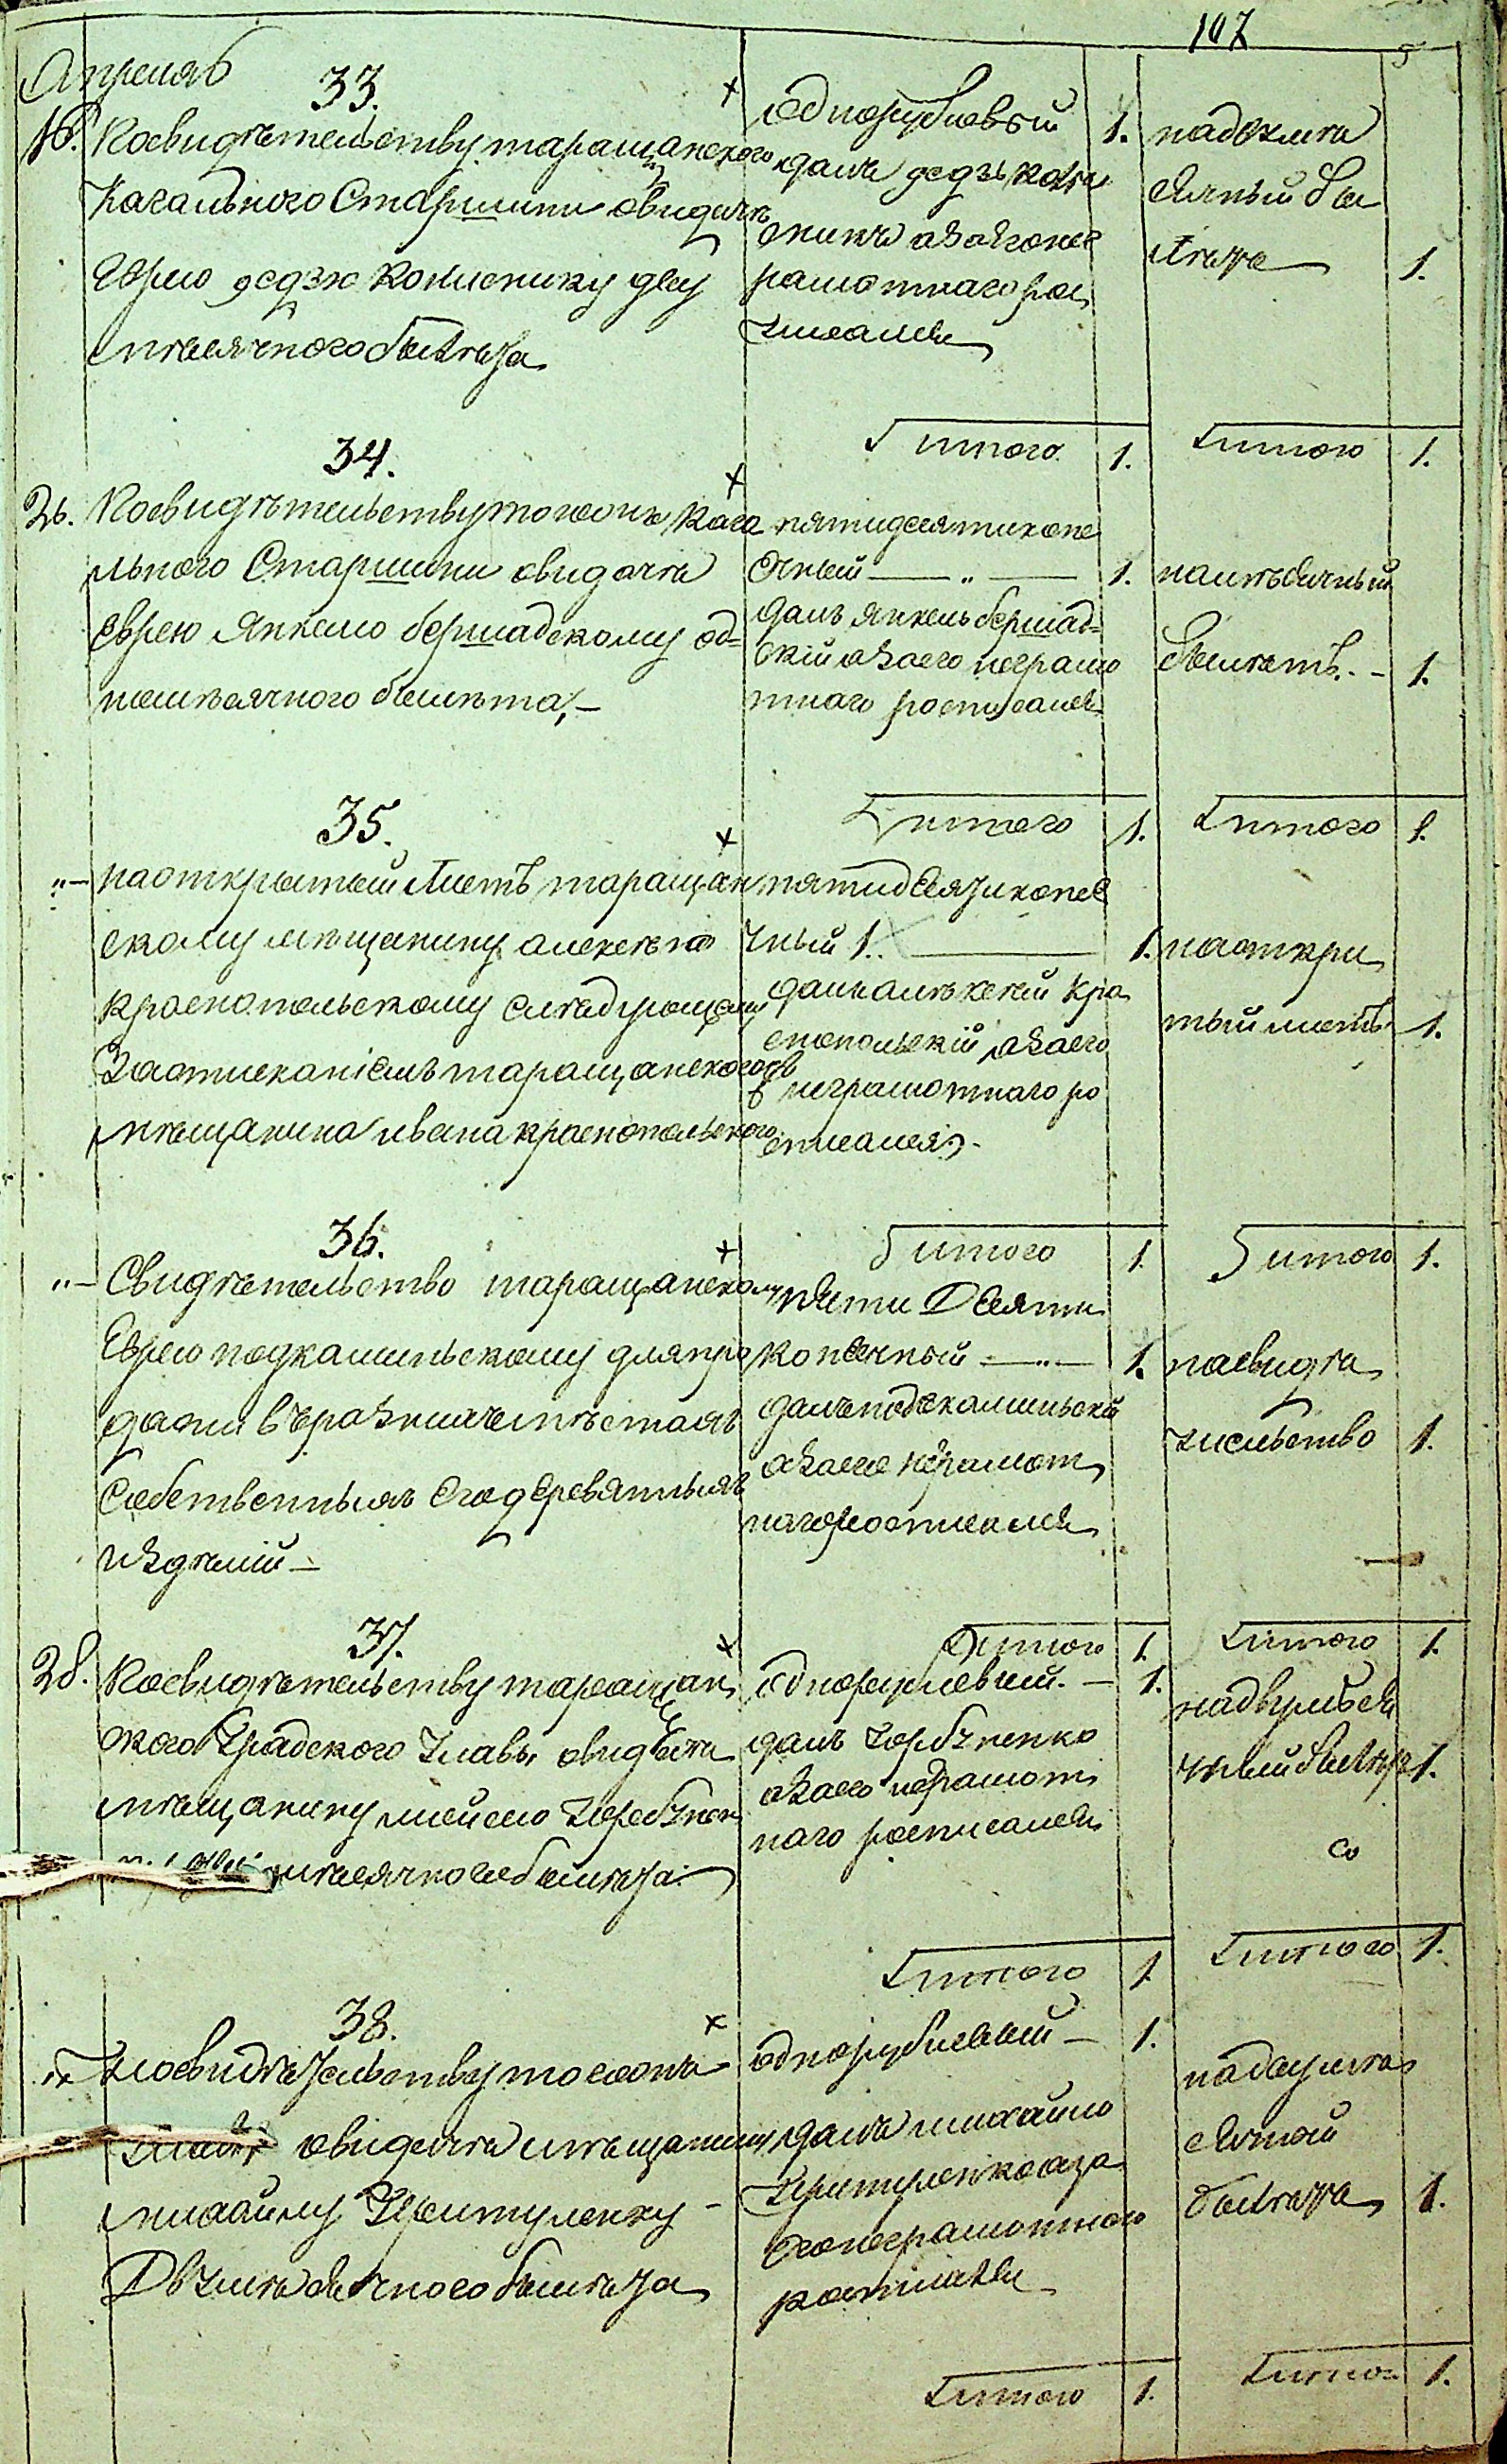 107
Апреля
33.
18. Посвидѣтельству таращанского
Кагального Старшини овидачѣ
Еврею Дедзю Колиснику дву
мѣсячного билѣта
однорублевый 1.
далъ дедзь коли
сникъ азаегонег
рамотнаго рос
писался
надвхмѣ
сячный би
лѣтъ 1.
Итого 1. Итого 1.
34.
26. Посвидѣтельству тогожъ Кага
льного Старшини овидачѣ
Еврею Янкелю бершадскому од=
номѣсячного билѣта,–
пятидесятикопе
ечный — „ — 1.
далъ Янкель бершад=
скій азаего неграмо
тнаго росписался
намѣсячный
билѣтъ. - 1.
Итого 1. Итого 1.
35.
„– наоткрытый Листъ таращан
скому мѣщанину алексѣю
Краснопольскому слѣдующому
Заотисканіемъ таращанского
мѣщанина ивана краснопольского
пятидесятикопее
чный 1. — 1.
далъ алѣксей Кра
снопольскій азаего
неграмотнаго ро
списался.-
наоткри
тый листъ 1.
Итого 1. Итого 1.
36.
„– Свидѣтельство таращанскому
Еврею подкаминьскому дляпро
дажи въразнихъ мѣстахъ
Собственныхъ Его деревянныхъ
издѣлій –
пяти Десяти
копѣечный — „ — 1.
далъ подкаминьскій
азаего неграмот
наго росписался
насвидѣ
тельство 1.
Итого 1. Итого 1.
37.
28. Посвидѣтельству таращан
ского Градского Главы овидачѣ
мѣщанину
мѣсячного билѣта
однорублевый. – 1.
далъ Горбченко
азаего неграмот
наго росписался
надвумѣся
чный билѣтъ 1.
Итого 1. Итого 1.
38.
„– Посвидѣтельству тогожъ
Главы овидачѣ мѣщанину
михайлу Гритуленку –
Двхмѣсячного билѣта
однорублевый – 1.
далъ михайло
Гритуленко аза
его неграмотного
росписался
надвумѣ
сячной
билѣтъ 1.
Итого 1. Итого 1.